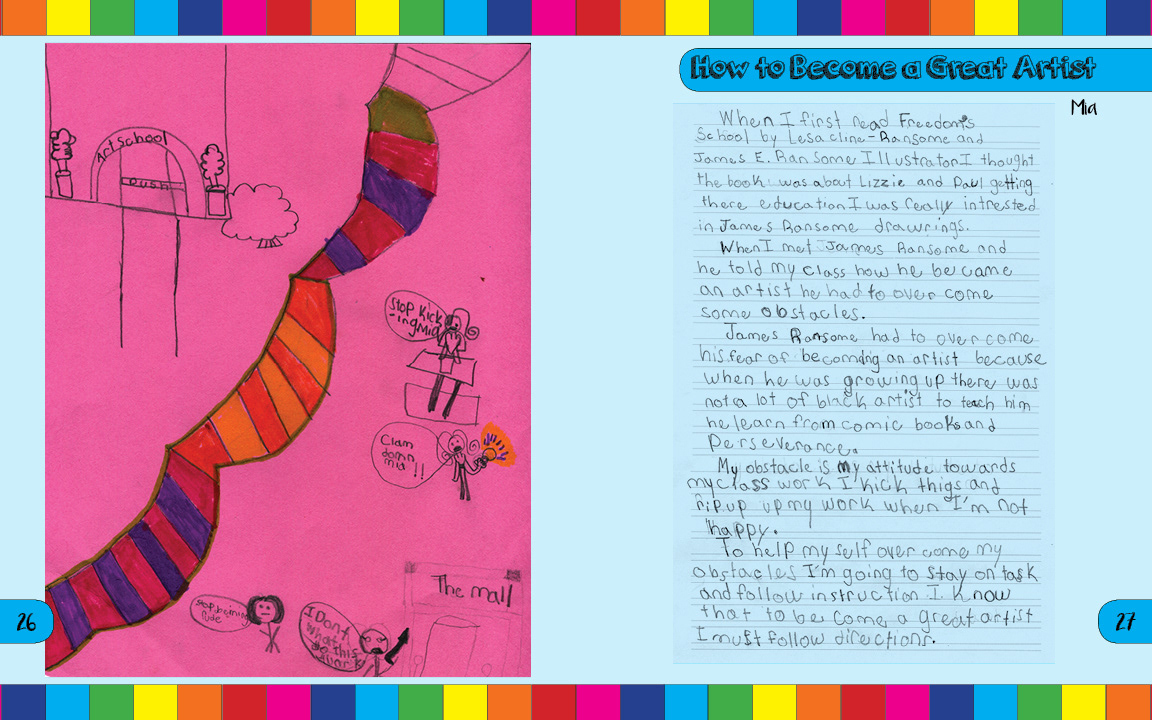 Art School
PUSH
Stop kick
-ing Mia
Clam
down
mia !!
Stop beining
rude
I Dont
what this
do
work
The mall
26
How to Become a Great Artist
Mia
When I first read Freedom's
School by Lesa cline-Ransome and
James E. Ransome Illustrator I thought
the book was about Lizzie and Paul getting
there education I was really intrested
in James Ransome drawrings.
When I met James Ransome and
he told my class how he be came
an artist he had to over come
some obstacles.
James Ransome had to over come
his fear of becomding an artist because
when he was growing up there was
not a lot of black artist to teach him
he learn from comic books and
Perseverance.
My obstacle is my attitude towards
my class work I kick thigs and
rip up up my work when I'm not
happy.
To help my self over come my
obstacles I'm going to stay on task
and follow instruction I know
that to be come a great artist
I must follow directions.
27